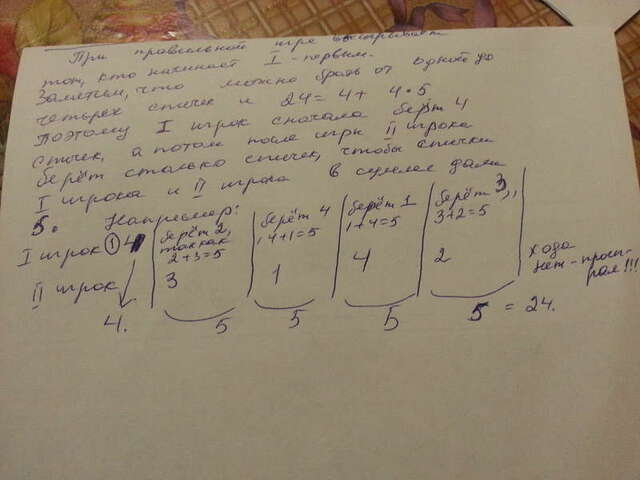 При правильной игре выигрывает
тот, кто начинает I - первым.
Заметим, что можно брать от одной до
четырех спичек и 24 = 4 + 4 · 5
Поэтому I игрок сначала берёт 4
спичек, а потом после игры II игрока
берёт столько спичек, чтобы спички
I игрока и II игрока в сумме дали
5. Например:
I игрок ① 4 | берёт 2, так как 2+3=5 | берёт 4, 4+1=5 | берёт 1, 1+4=5 | берёт 3, 3+2=5 |
II игрок | 3 | 1 | 4 | 2 | хода нет - проиграл!!!
4. 5 5 5 5 = 24.